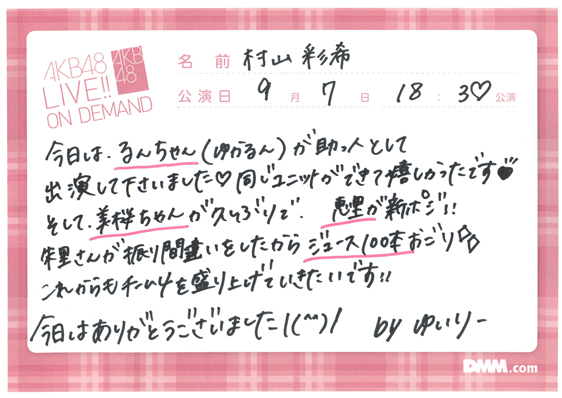 AKB48
LIVE!!
ON DEMAND
AKB
48
名前 村山彩希
公演日 9月7日 18:30♡公演
今日は、るんちゃん(ゆかるん)が助っ人として
出演して下さいました♡同じユニットができて嬉しかったです♥
そして、美桜ちゃんが久しぶりで、恵里が新ポジ!!
朱里さんが振り間違いをしたからジュース100本おごり☆
これからもチーム4を盛り上げていきたいです!!
今日はありがとうございました\(^^)/ by ゆいりー
DMM.com